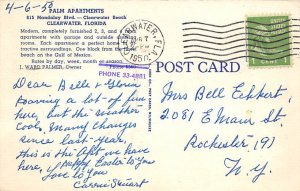 4-6-50
PALM APARTMENTS
815 Mandalay Blvd. — Clearwater Beach
CLEARWATER, FLORIDA
Modern, completely furnished 2, 3, and 4 room
apartments with garage and outside
rooms. Each apartment a perfect home in
tive surroundings. One block from the
beach on the Gulf of Mexico.
Rates by day, week, month or
J. WARD PALMER, Owner
PHONE 33-4881
CLEARWATER, FLA.
1950
1 CENT 1
POST CARD
Dear Belle & Glenn
Having a lot of fun
here, but the weather
cool, Many changes
since last year,
this is the apt we have
here, Happy Easter to You
Love to You
Carrie Stewart
Mrs Bell Eckert,
2081 E Main St
Rochester, (9)
N.Y.